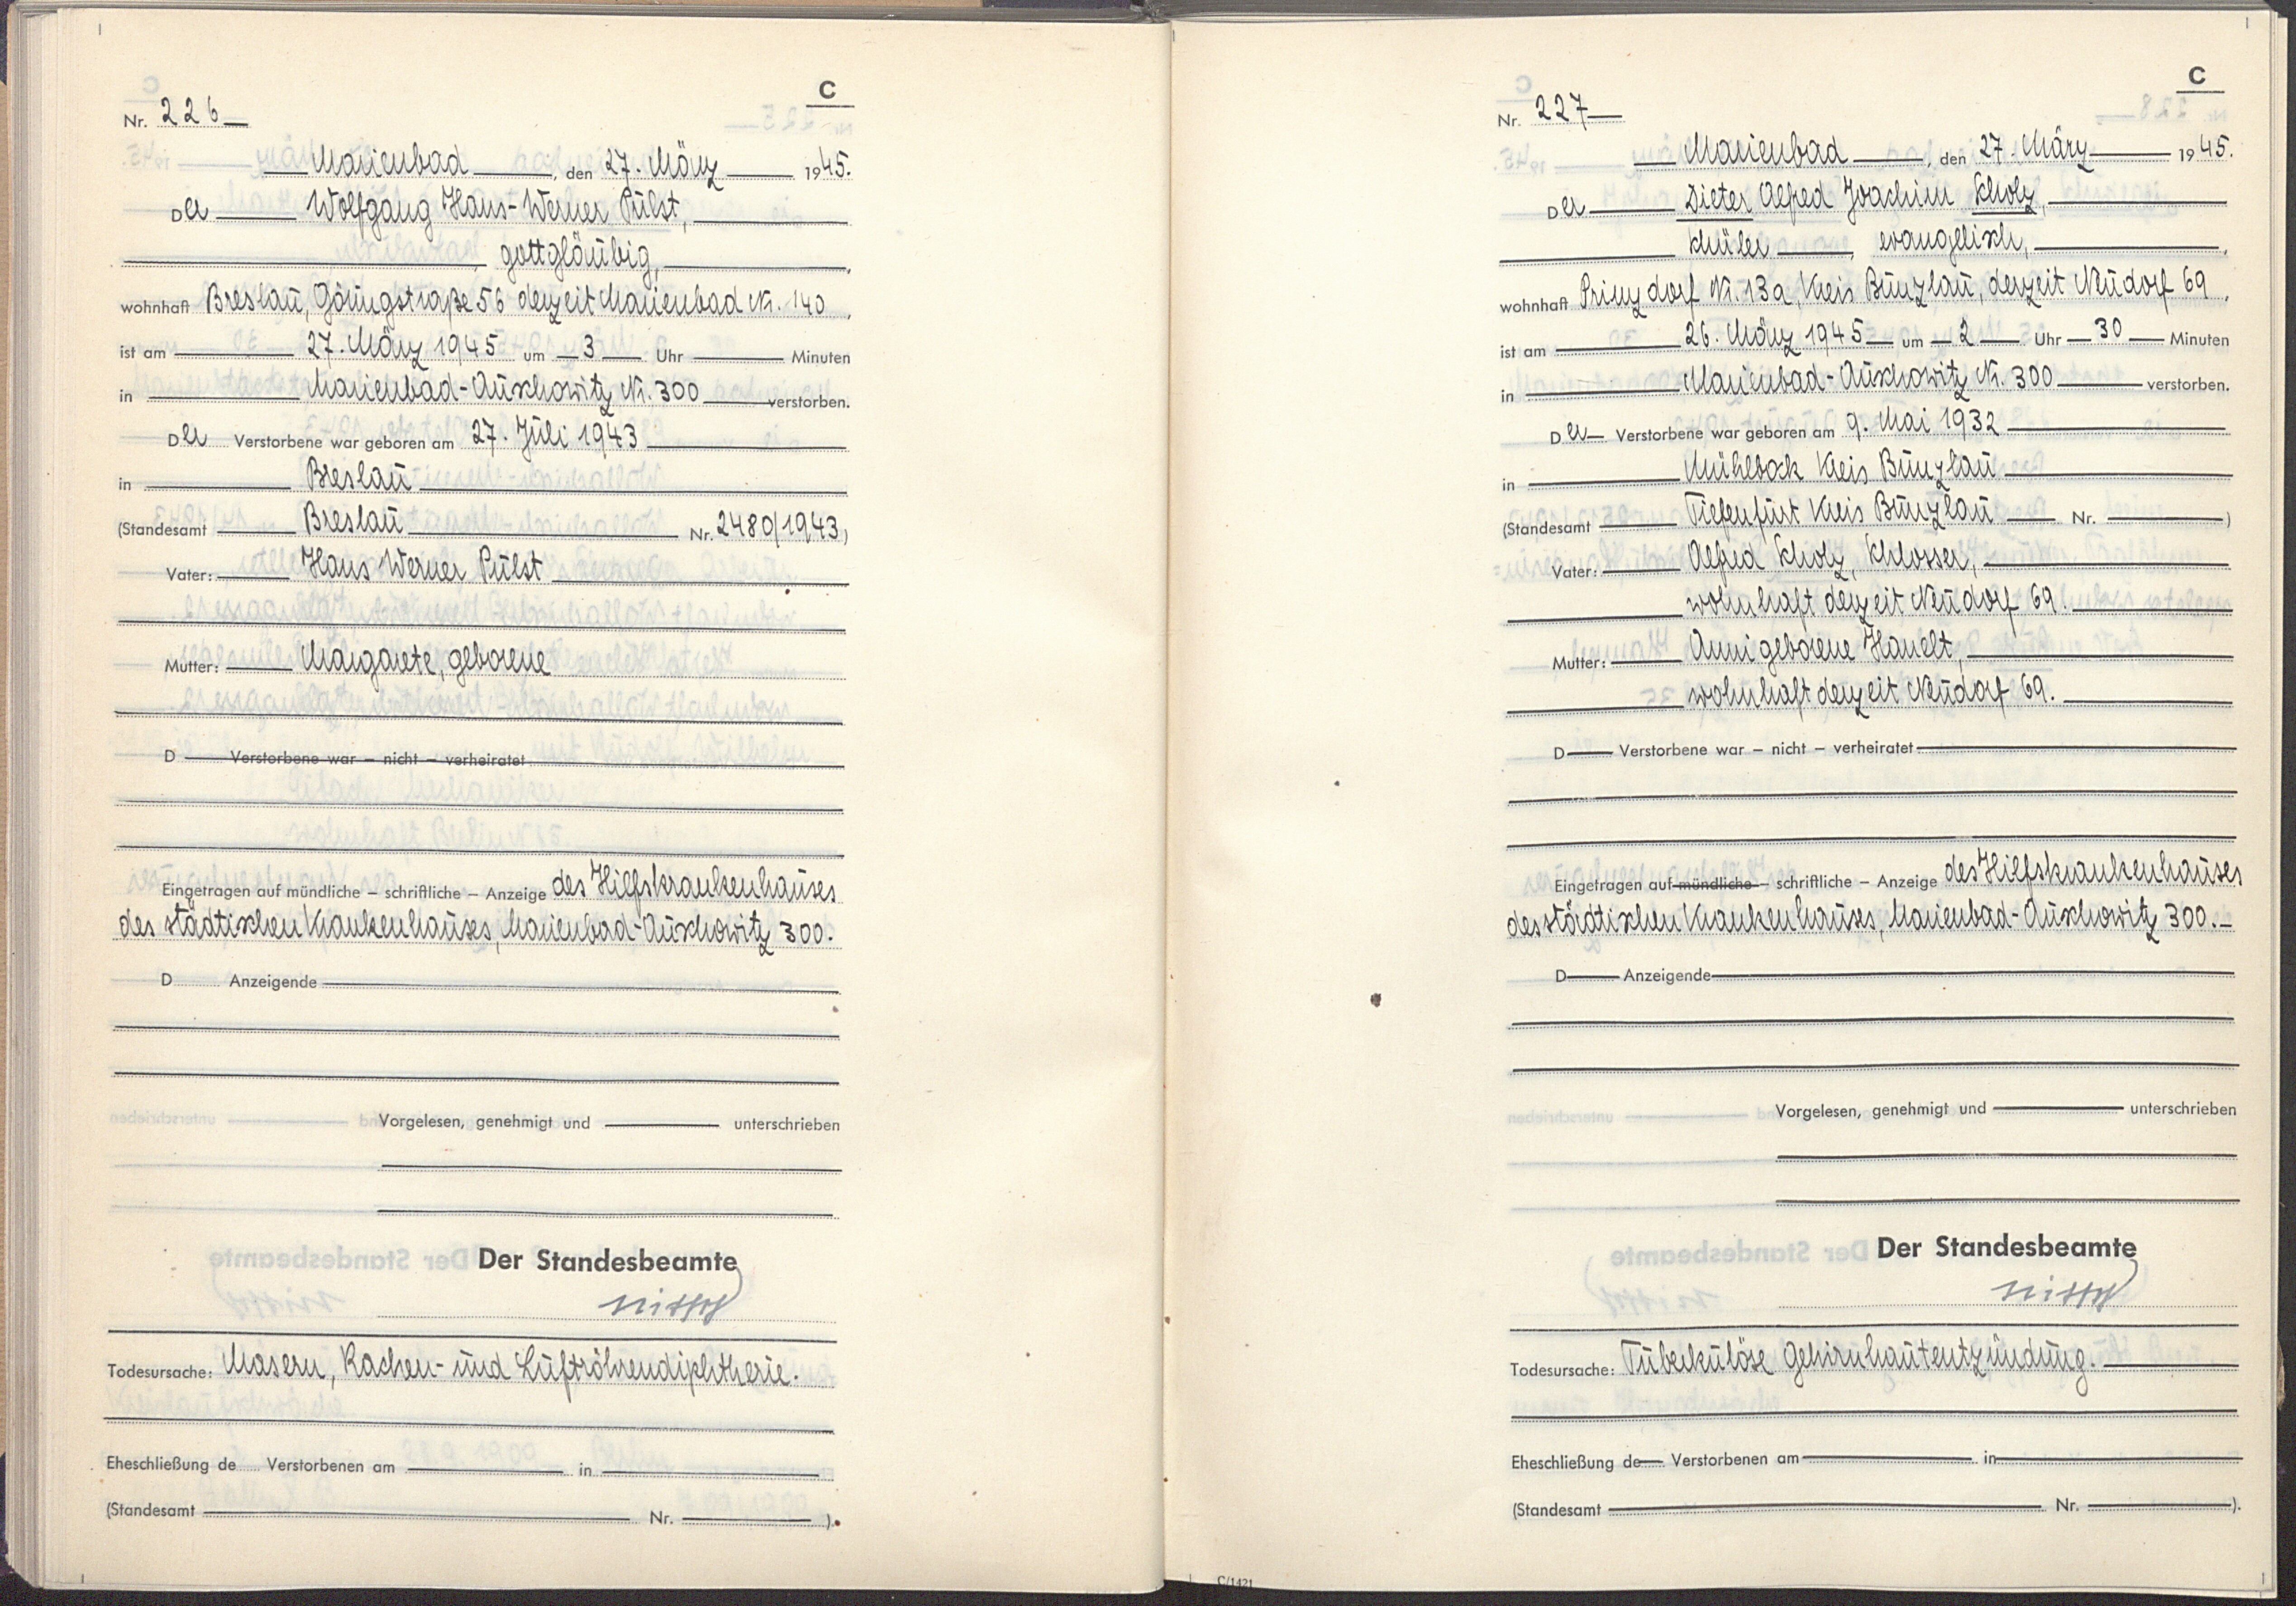 C
Nr. 226
Marienbad, den 27. März 1945.
Der Wolfgang Hans-Werner Pulst,
gottgläubig,
wohnhaft Breslau, Göringstraße 56 derzeit Marienbad Nr. 140,
ist am 27. März 1945 um 3 Uhr Minuten
in Marienbad-Auschowitz Nr. 300 verstorben.
Der Verstorbene war geboren am 27. Juli 1943
in Breslau
(Standesamt Breslau Nr. 2480/1943)
Vater: Hans Werner Pulst
Mutter: Margarete, geborene
D Verstorbene war – nicht – verheiratet
Eingetragen auf mündliche – schriftliche – Anzeige des Hilfskrankenhauses
des städtischen Krankenhauses, Marienbad-Auschowitz 300.
D Anzeigende
Vorgelesen, genehmigt und unterschrieben
Der Standesbeamte
Todesursache: Masern, Rachen- und Luftröhrendiphtherie.
Eheschließung de Verstorbenen am in
(Standesamt Nr. ).
C
Nr. 227
Marienbad, den 27. März 1945.
Der Dieter Alfred Joachim Scholz,
Schüler, evangelisch,
wohnhaft Prinzdorf Nr. 13a, Kreis Bunzlau, derzeit Neudorf 69,
ist am 26. März 1945 um 2 Uhr 30 Minuten
in Marienbad-Auschowitz Nr. 300 verstorben.
Der Verstorbene war geboren am 9. Mai 1932
in Mühlbock Kreis Bunzlau
(Standesamt Tiefenfurt Kreis Bunzlau Nr. )
Vater: Alfred Scholz, Schlosser,
wohnhaft derzeit Neudorf 69.
Mutter: Anni geborene Hanelt,
wohnhaft derzeit Neudorf 69.
D Verstorbene war – nicht – verheiratet
Eingetragen auf mündliche – schriftliche – Anzeige des Hilfskrankenhauses
des städtischen Krankenhauses, Marienbad-Auschowitz 300.
D Anzeigende
Vorgelesen, genehmigt und unterschrieben
Der Standesbeamte
Todesursache: Tuberkulöse Gehirnhautentzündung.
Eheschließung de Verstorbenen am in
(Standesamt Nr. ).
C/1421